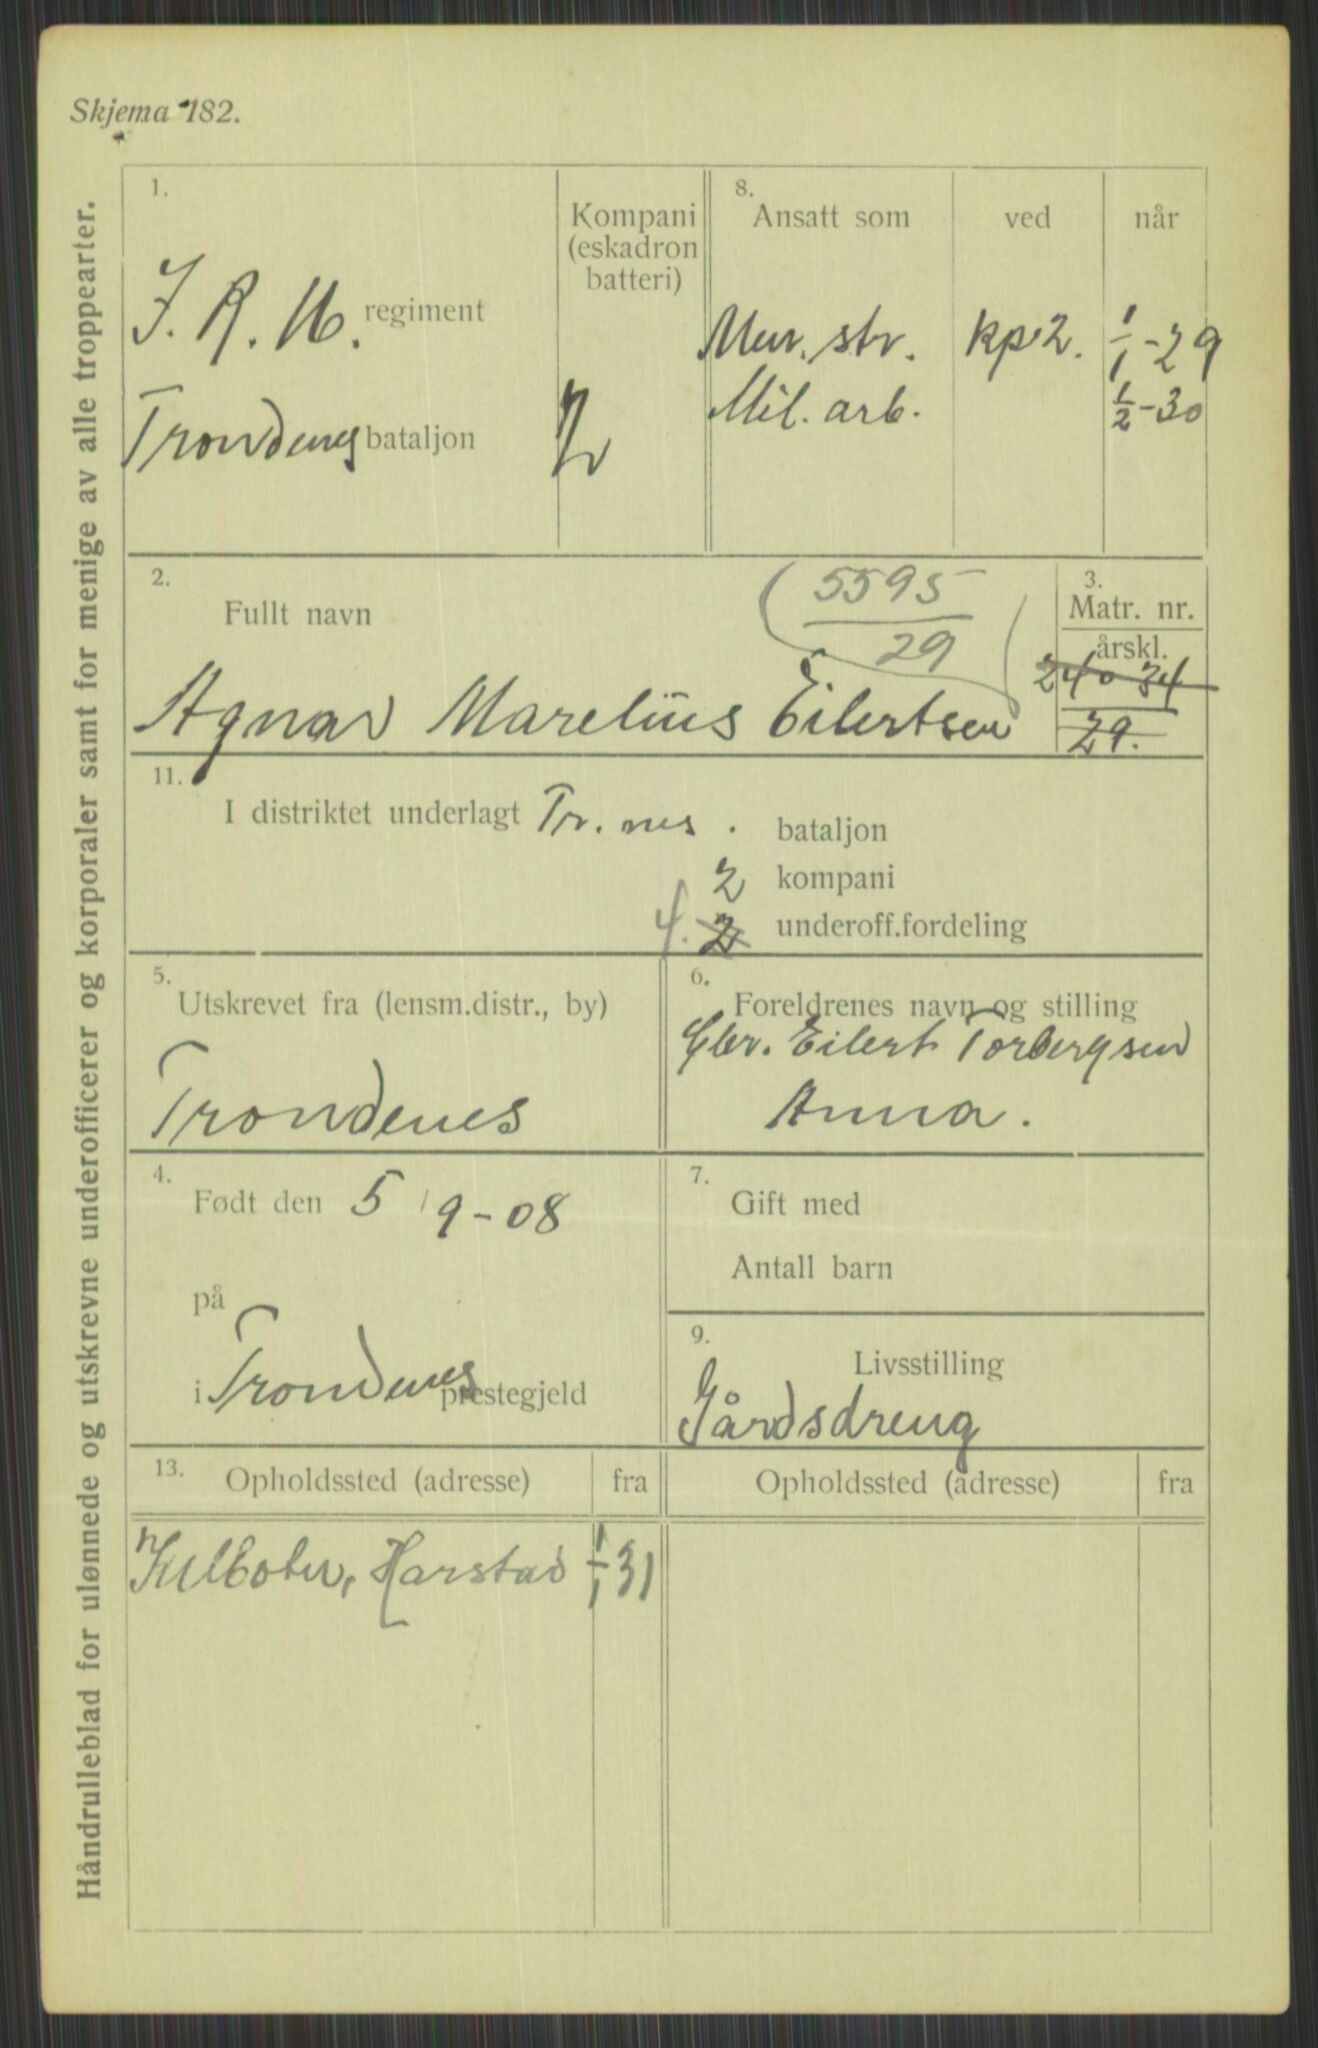 Skjema 182.
Håndrulleblad for ulønnede og utskrevne underofficerer og korporaler samt for menige av alle troppearter.
1.
I. R. 16. regiment
Trondenes bataljon
Kompani
(eskadron
batteri)
2
8.
Ansatt som ved når
str. kp 2. 1/1-29
Mil. arb. 1/2-30
2.
Fullt navn
5595
29
Agnar Marelius Eilertsen
3.
Matr. nr.
årskl.
34
29.
11.
I distriktet underlagt Tr.nes. bataljon
2 kompani
4. 2 underoff.fordeling
5.
Utskrevet fra (lensm.distr., by)
Trondenes
6.
Foreldrenes navn og stilling
Eilert Torbergsen
Anna.
4.
Født den 5/9-08
på
i Trondenes prestegjeld
7.
Gift med
Antall barn
9.
Livsstilling
Gårdsdreng
13.
Opholdssted (adresse) fra
Opholdssted (adresse) fra
Kilboten, Harstad 1/1 31